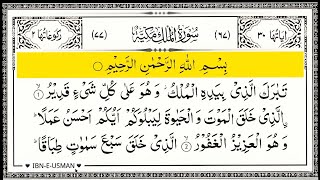 اٰیَاتُهَا ٣٠ (٦٧) سُوْرَةُ الْمُلْكِ مَكِّیَّةٌ (٧٧) رُكُوْعَاتُهَا ٢
بِسْمِ اللّٰهِ الرَّحْمٰنِ الرَّحِیْمِ
تَبٰرَكَ الَّذِیْ بِیَدِهِ الْمُلْكُ وَهُوَ عَلٰی كُلِّ شَیْءٍ قَدِیْرُ ۙ﴿١﴾
اِ۟لَّذِیْ خَلَقَ الْمَوْتَ وَالْحَیٰوةَ لِیَبْلُوَكُمْ اَیُّكُمْ اَحْسَنُ عَمَلًا ؕ
وَهُوَ الْعَزِیْزُ الْغَفُوْرُ ۙ﴿٢﴾ الَّذِیْ خَلَقَ سَبْعَ سَمٰوٰتٍ طِبَاقًا ؕ
IBN-E-USMAN